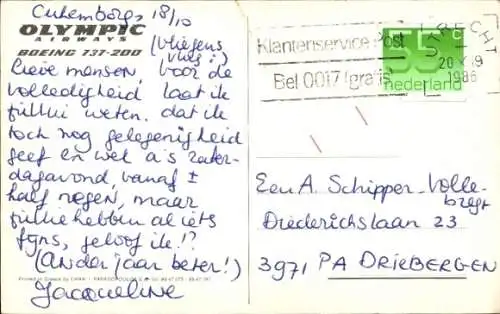 Culemborg, 18/10
OLYMPIC
AIRWAYS
BOEING 737-200
(vliegens
vlug!)
Lieve mensen, voor de
volledigheid laat ik
jullie weten dat ik
toch nog gelegenheid
geef en wel a.s. zater-
dagavond vanaf ±
half negen, maar
jullie hebben al iets
fijns, geloof ik!?
(Ander jaar beter!)
Jacqueline
Klantenservice Post
Bel 0017 / gratis
UTRECHT
20 X 19
1986
55c
nederland
E en A. Schipper-Volle-
bregt
Diederichslaan 23
3971 PA DRIEBERGEN